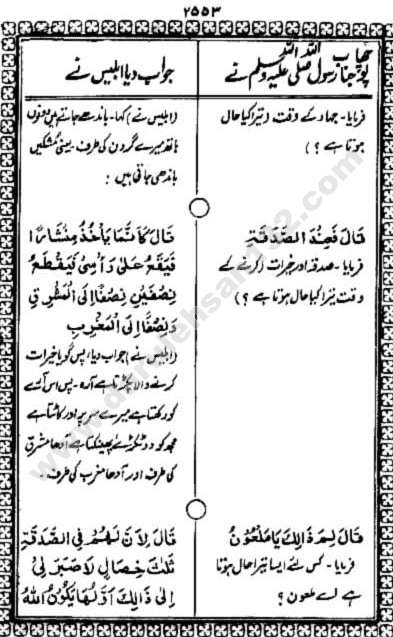 ۲۵۵۳
پوچھا جناب رسول اللہ صلی اللہ علیہ وسلم نے
جواب دیا ابلیس نے
فرمایا۔ جہاد کے وقت (تیرا کیا حال
ہوتا ہے؟)
(ابلیس نے) کہا۔ باندھے جاتے ہیں دونوں
ہاتھ میرے گردن کی طرف۔ یعنی مُشکیں
باندھی جاتی ہیں:
قَالَ فَعِنْدَ الصَّدَقَةِ
فرمایا۔ صدقہ اور خیرات (کرنے کے
وقت تیرا کیا حال ہوتا ہے؟)
قَالَ كَاَنَّمَا يَأْخُذُ مِنْشَارًا
فَيَقَعُ عَلٰى رَاْسِىْ فَيَقْطَعُ
نِصْفَيْنِ نِصْفًا اِلَى الْمَشْرِقِ
وَنِصْفًا اِلَى الْمَغْرِبِ
(ابلیس نے) جواب دیا، پس گویا خیرات
کرنے والا پکڑتا ہے آرہ۔ پس اس آرے
کو رکھتا ہے میرے سر پر اور کاٹتا ہے
مجھ کو دو ٹکڑے، پھینکتا ہے آدھا مشرق
کی طرف اور آدھا مغرب کی طرف۔
قَالَ لِمَ ذَالِكَ يَا مَلْعُوْنُ
فرمایا۔ کس لئے ایسا تیرا حال ہوتا
ہے اے ملعون؟
قَالَ لِاَنَّ لَهُمْ فِى الصَّدَقَةِ
ثَلٰثَ خِصَالٍ لَا صَبَرَ لِىْ
اِلٰى ذَالِكَ اَوَّلُهَا يَكُوْنُ اللّٰهُ